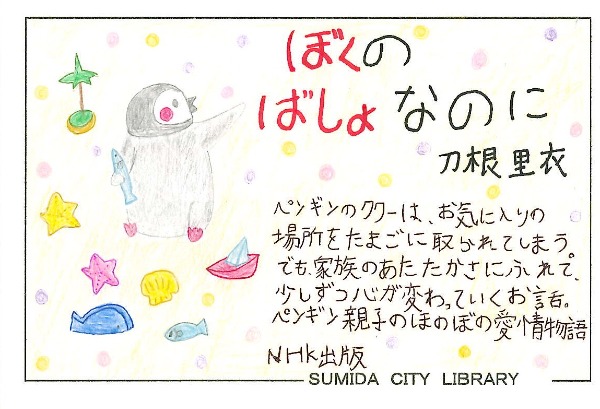 ぼくの
ばしょなのに
刀根里衣
ペンギンのククーは、お気に入りの
場所をたまごに取られてしまう。
でも、家族のあたたかさにふれて、
少しずつ心が変わっていくお話。
ペンギン親子のほのぼの愛情物語
NHK出版
SUMIDA CITY LIBRARY